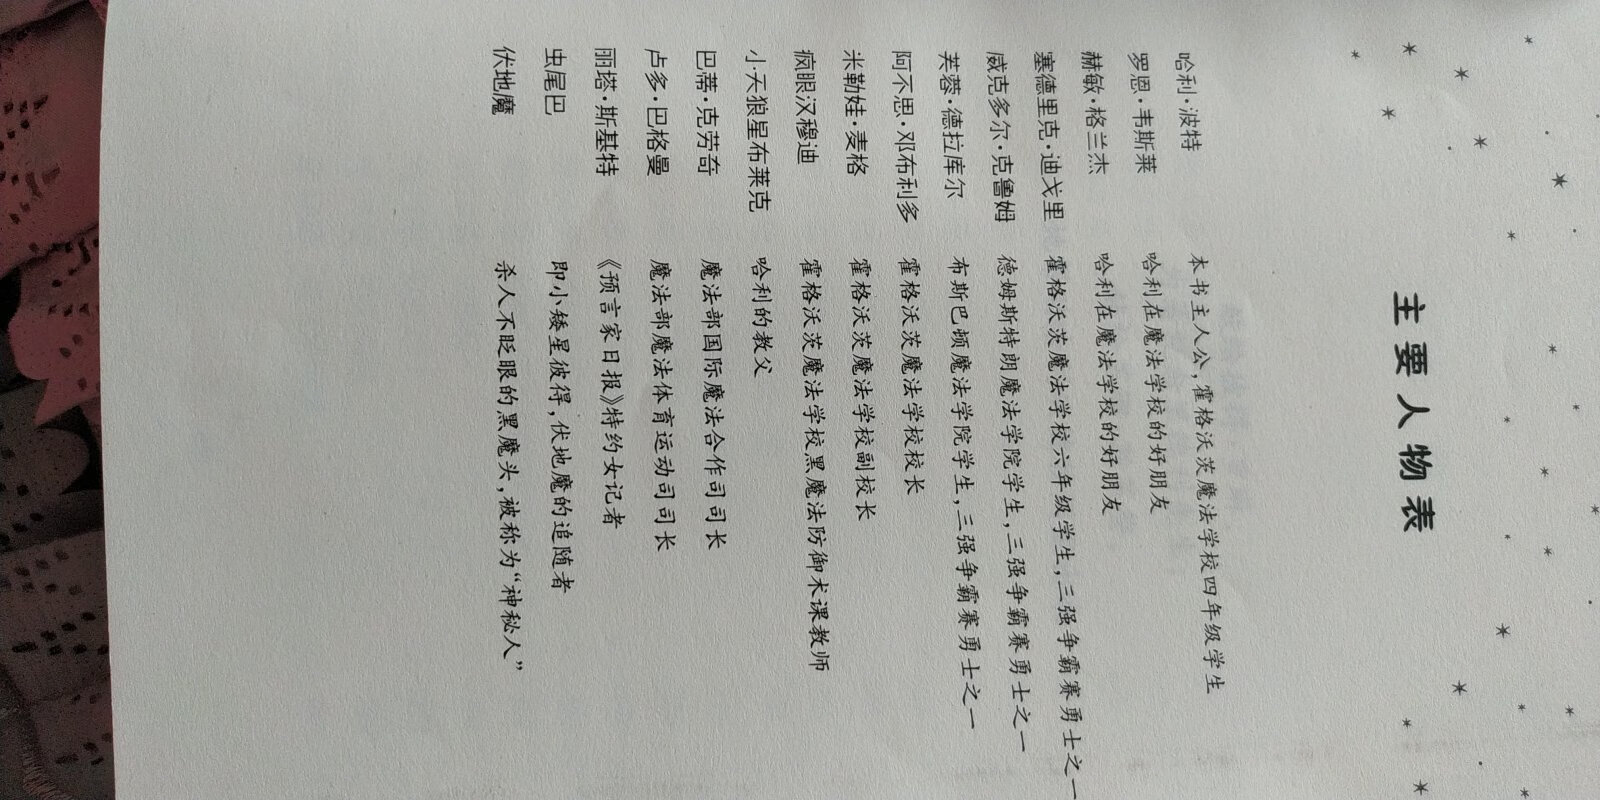 主要人物表
哈利·波特 本书主人公,霍格沃茨魔法学校四年级学生
罗恩·韦斯莱 哈利在魔法学校的好朋友
赫敏·格兰杰 哈利在魔法学校的好朋友
塞德里克·迪戈里 霍格沃茨魔法学校六年级学生,三强争霸赛勇士之一
威克多尔·克鲁姆 德姆斯特朗魔法学院学生,三强争霸赛勇士之一
芙蓉·德拉库尔 布斯巴顿魔法学院学生,三强争霸赛勇士之一
阿不思·邓布利多 霍格沃茨魔法学校校长
米勒娃·麦格 霍格沃茨魔法学校副校长
疯眼汉穆迪 霍格沃茨魔法学校黑魔法防御术课教师
小天狼星布莱克 哈利的教父
巴蒂·克劳奇 魔法部国际魔法合作司司长
卢多·巴格曼 魔法部魔法体育运动司司长
丽塔·斯基特 《预言家日报》特约女记者
虫尾巴 即小矮星彼得,伏地魔的追随者
伏地魔 杀人不眨眼的黑魔头,被称为“神秘人”